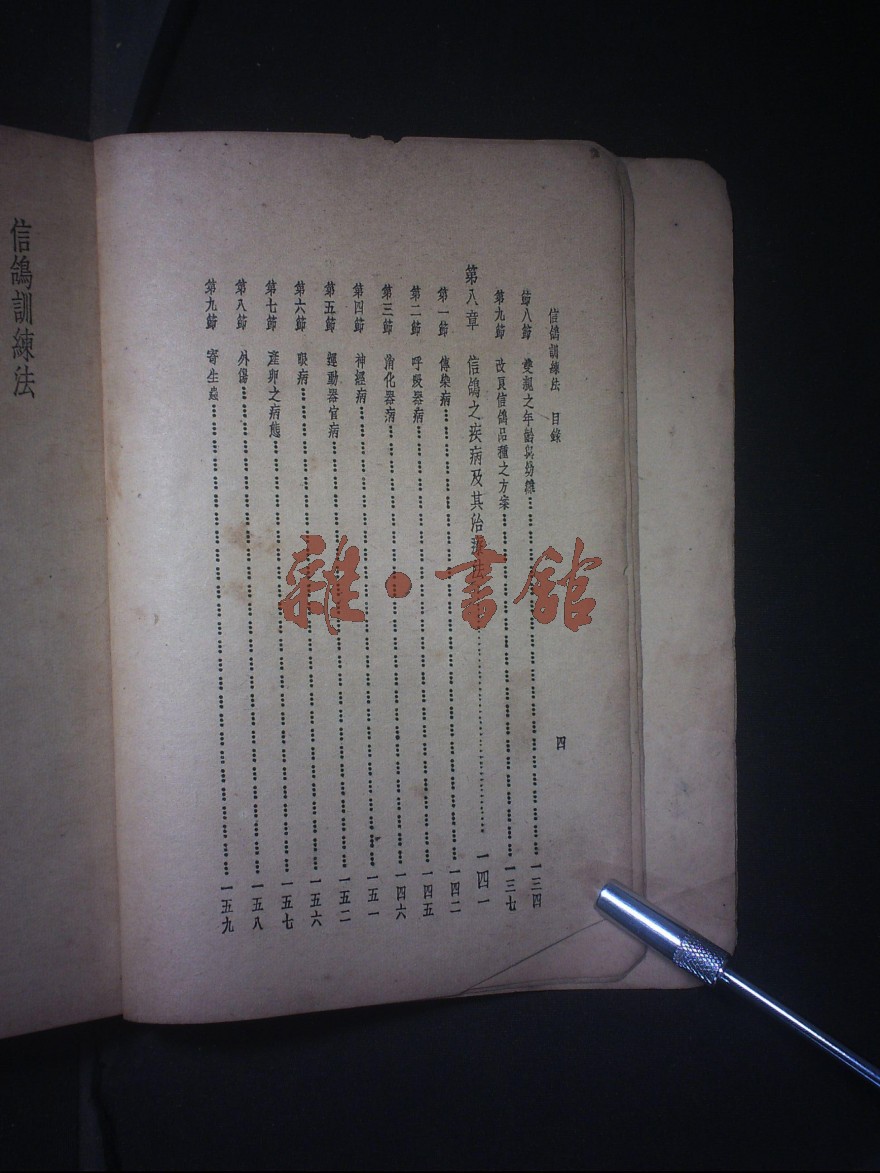 信鴿訓練法　目錄
四
第八節　雙親之年齡與幼雛……一三四
第九節　改良信鴿品種之方案……一三七
第八章　信鴿之疾病及其治療法……一四一
第一節　傳染病……一四二
第二節　呼吸器病……一四五
第三節　消化器病……一四六
第四節　神經病……一五一
第五節　運動器官病……一五二
第六節　眼病……一五六
第七節　產卵之病態……一五七
第八節　外傷……一五八
第九節　寄生蟲……一五九
信鴿訓練法
雜·書館